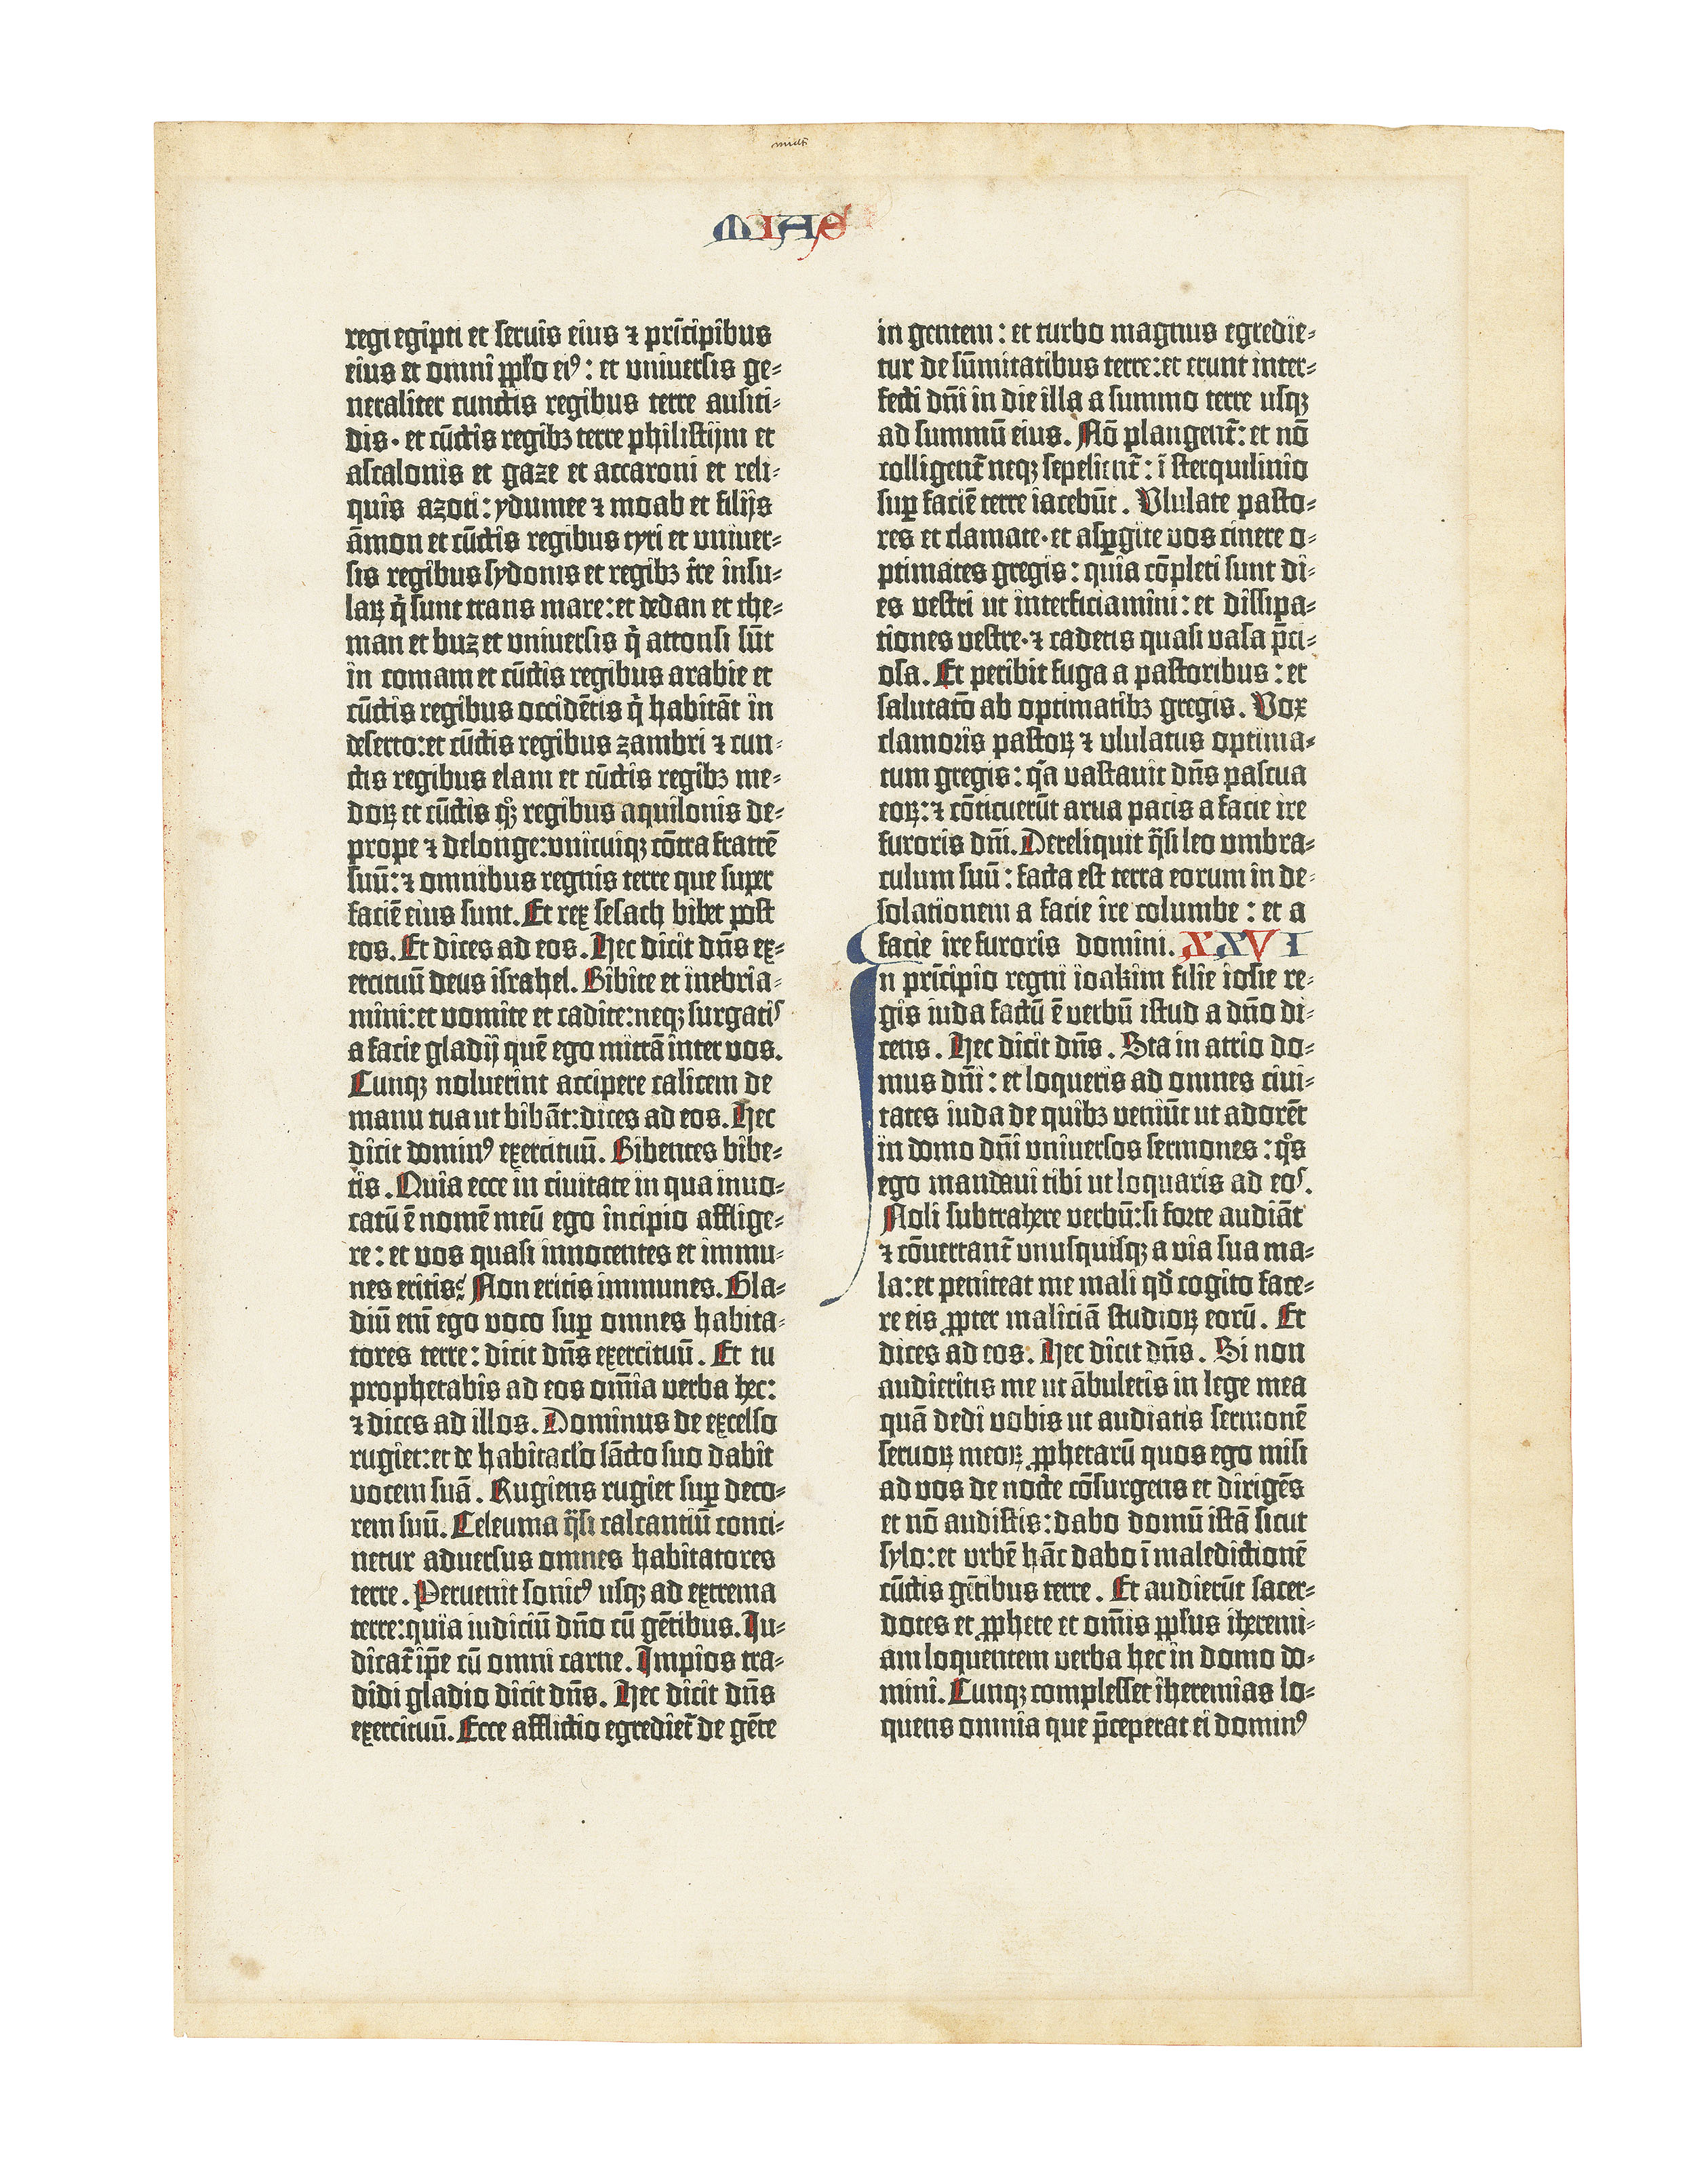 MIAS
regi egipti et seruis eius ⁊ prīcipibus
eius et omni pplo eiꝰ: et uniuersis ge-
neraliter cunctis regibus terre ausiti-
dis· et cūctis regibꝫ terre philistijm et
ascalonis et gaze et accaroni et reli-
quis azoti: ydumee ⁊ moab et filijs
āmon et cūctis regibus tyri et uniuer-
sis regibus sydonis et regibꝫ t̄re insu-
laꝝ q̄ sunt trans mare: et dedan et the-
man et buz et uniuersis q̄ attonsi sūt
in comam et cūctis regibus arabie et
cūctis regibus occidētis q̄ habitāt in
deserto: et cūctis regibus zambri ⁊ cun-
ctis regibus elam et cūctis regibꝫ me-
doꝝ et cūctis qͦꝫ regibus aquilonis de-
prope ⁊ delonge: unicuiqꝫ cōtra fratrē
suū: ⁊ omnibus regnis terre que super
faciē eius sunt. Et rex sesach bibet post
eos. Et dices ad eos. Hec dicit dn̄s ex-
ercituū deus israhel. Bibite et inebria-
mini: et vomite et cadite: neqꝫ surgatis
a facie gladij quē ego mittā inter vos.
Cunqꝫ noluerint accipere calicem de
manu tua ut bibāt: dices ad eos. Hec
dicit dominꝰ exercituū. Bibentes bibe-
tis. Quia ecce in ciuitate in qua inuo-
catū ē nomē meū ego incipio afflige-
re: et vos quasi innocentes et immu-
nes eritis? Non eritis immunes. Gla-
diū eni̅ ego voco suꝑ omnes habita-
tores terre: dicit dn̄s exercituū. Et tu
prophetabis ad eos om̄ia verba hec:
⁊ dices ad illos. Dominus de excelso
rugiet: et de habitacl'o sācto suo dabit
vocem suā. Rugiens rugiet suꝑ deco-
rem suū. Celeuma q̄si calcantiū conci-
netur aduersus omnes habitatores
terre. Peruenit sonitꝰ usqꝫ ad extrema
terre: quia iudiciū dn̄o cū gētibus. Iu-
dicat᷑ ip̄e cū omni carne. Impios tra-
didi gladio dicit dn̄s. Hec dicit dn̄s
exercituū. Ecce afflictio egrediet᷑ de gēte
in gentem: et turbo magnus egredie-
tur de sūmitatibus terre: et erunt inter-
fecti dn̄i in die illa a summo terre usqꝫ
ad summū eius. Nō plangent᷑: et nō
colligent᷑ neqꝫ sepelient᷑: ī sterquilinio
suꝑ faciē terre iacebūt. Ululate pasto-
res et clamate· et asꝑgite vos cinere o-
ptimates gregis: quia cōpleti sunt di-
es vestri ut interficiamini: et dissipa-
tiones vestre· ⁊ cadetis quasi vasa p̄ci-
osa. Et peribit fuga a pastoribus: et
salutatō ab optimatibꝫ gregis. Vox
clamoris pastoꝝ ⁊ ululatus optima-
tum gregis: qͣa vastauit dn̄s pascua
eoꝝ: ⁊ cōticuerūt arua pacis a facie ire
furoris dn̄i. Dereliquit q̄si leo umbra-
culum suū: facta est terra eorum in de-
solationem a facie ire columbe: et a
facie ire furoris domini. XXVI
In prīcipio regni ioakim filie iosie re-
gis iuda factū ē verbū istud a dn̄o di-
cens. Hec dicit dn̄s. Sta in atrio do-
mus dn̄i: et loqueris ad omnes ciui-
tates iuda de quibꝫ veniūt ut adorēt
in domo dn̄i uniuersos sermones: qͦs
ego mandaui tibi ut loquaris ad eos.
Noli subtrahere verbū: si forte audiāt
⁊ cōuertant᷑ unusquisqꝫ a via sua ma-
la: et peniteat me mali qd̄ cogito face-
re eis ꝓpter maliciā studioꝝ eorū. Et
dices ad eos. Hec dicit dn̄s. Si non
audieritis me ut ābuletis in lege mea
quā dedi vobis ut audiatis sermonē
seruoꝝ meoꝝ ꝓphetarū quos ego misi
ad vos de nocte cōsurgens et dirigēs
et nō audistis: dabo domū istā sicut
sylo: et urbē hāc dabo ī maledictionē
cūctis gētibus terre. Et audierūt sacer-
dotes et ꝓphete et om̄is pplus iheremi-
am loquentem verba hec in domo do-
mini. Cunqꝫ complesset iheremias lo-
quens omnia que p̄ceperat ei dominꝰ